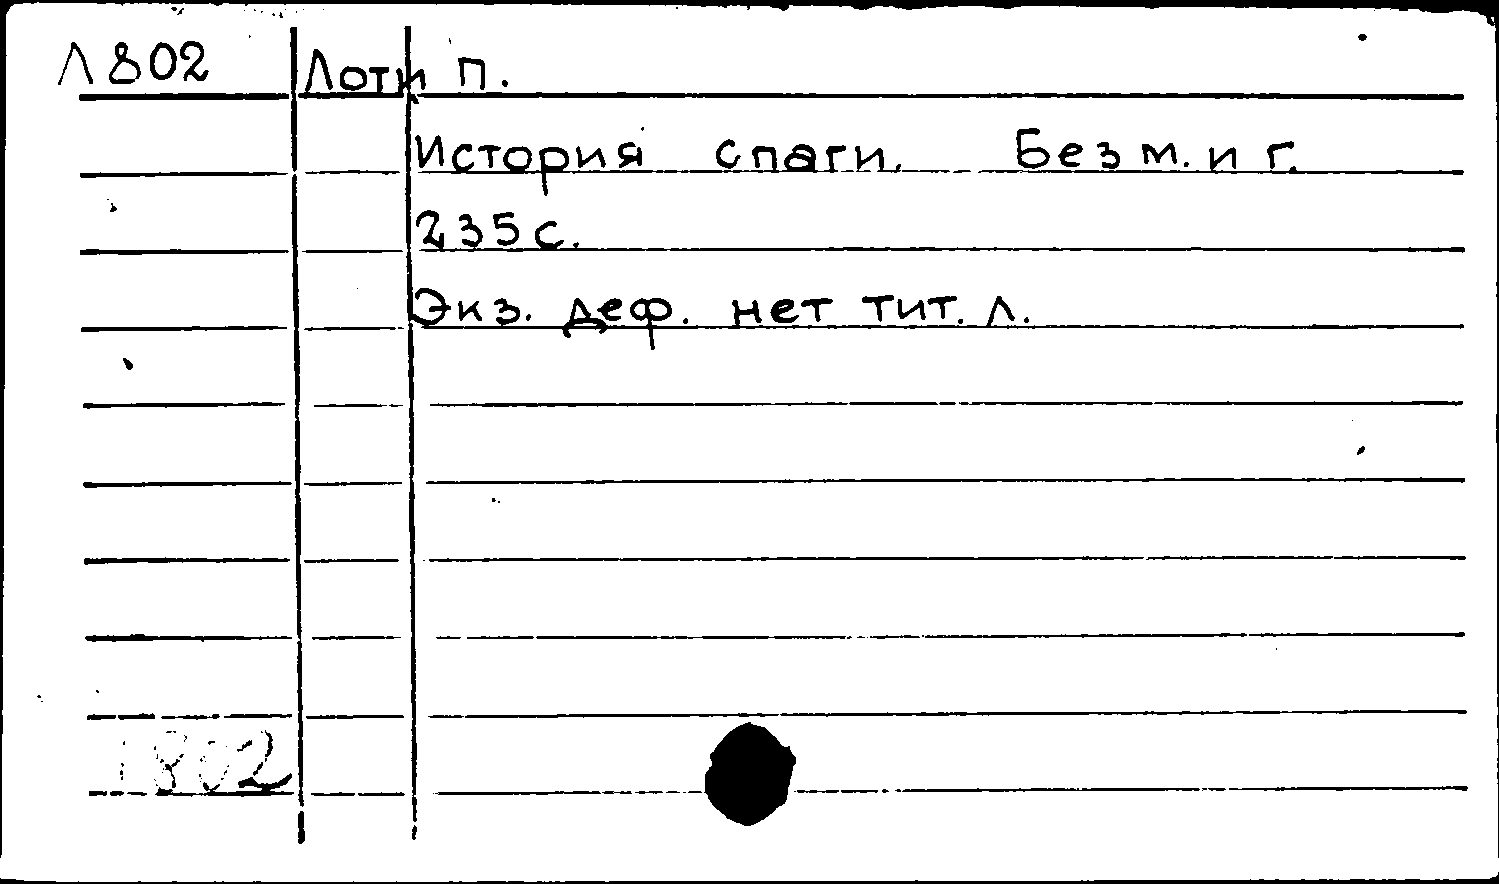 Л 802 Лоти П.
История спаги. Без м. и г.
235 с.
Экз. деф. нет тит. л.
1802